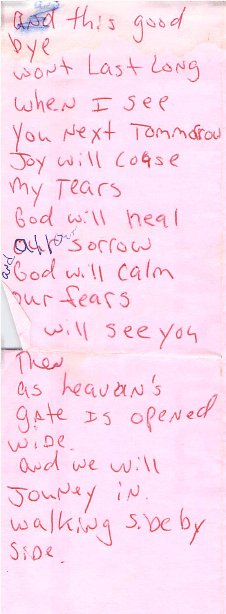 and this good
bye
wont Last Long
when I see
you Next Tommorow
Joy will cease
my Tears
God will heal
all our sorrow
and God will calm
our fears
will see you
Then
as heavan's
gate Is opened
wide.
and we will
Journey in.
walking side by
side.